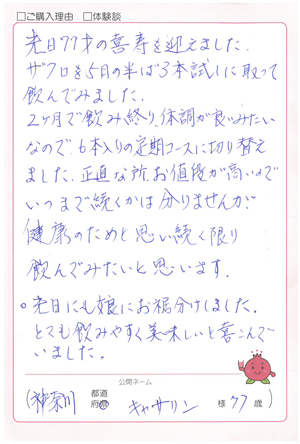 □ご購入理由　□体験談
先日77才の喜寿を迎えました.
ザクロを5日の半ば3本試しに取って
飲んでみました.
2ヶ月で飲み終り、体調が良いみたい
なので、6本入りの定期コースに切り替え
ました、正直な所、お値段が高いので
いつまで続くかは分りませんが、
健康のためと思い続く限り
飲んでみたいと思います.
○先日にも娘にお裾分けしました.
とても飲みやすく美味しいと喜こんで
いました.
公開ネーム
(神奈川 都道府県 キャサリン 様 77 歳)